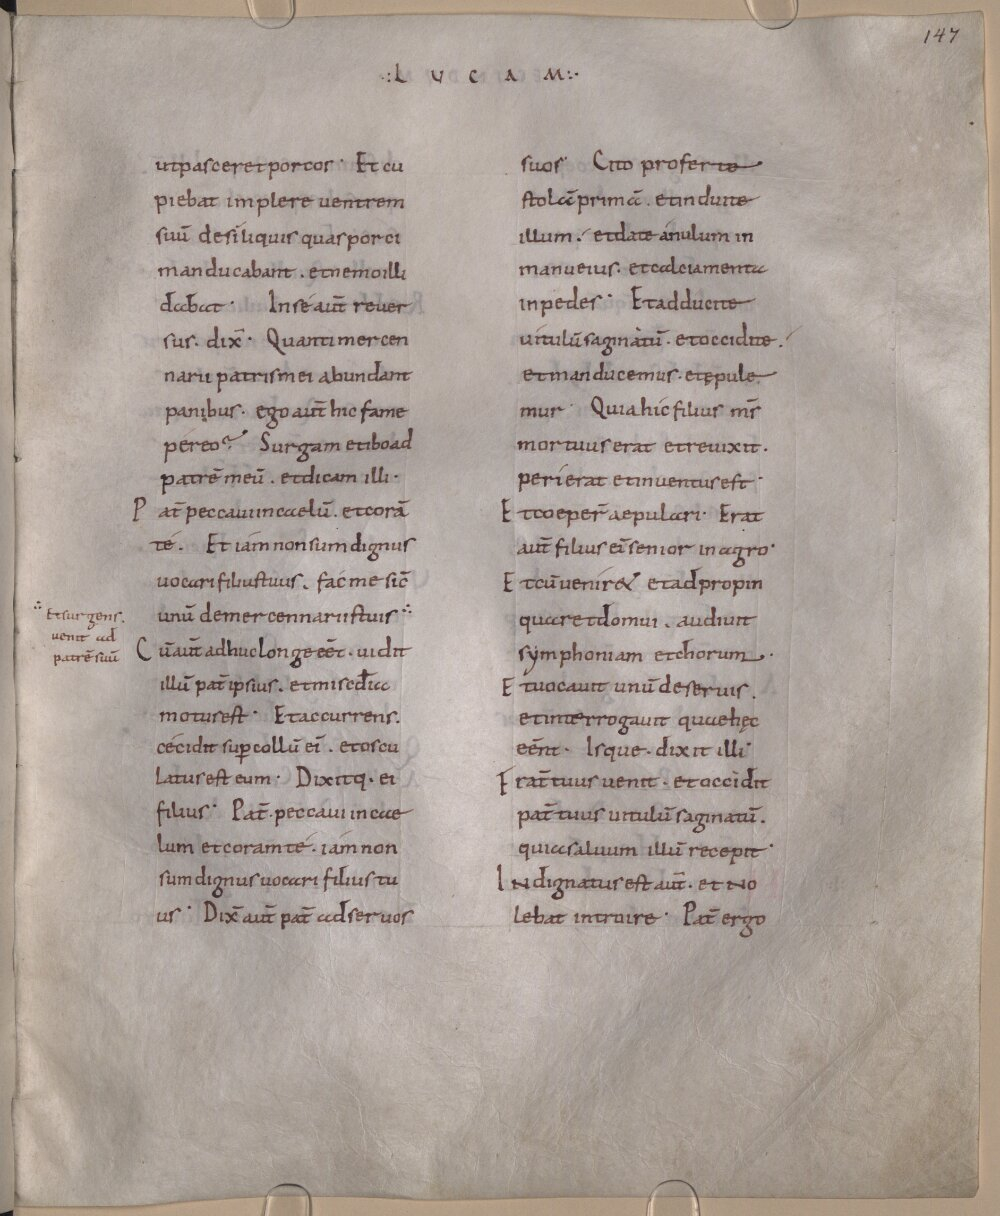 147
·:L U C A M:·
utpasceret porcos· Et cu
piebat implere ventrem
suū desiliquis quas porci
manducabant. et nemo illi
dabat· In sé aut̄ rever
sus. dix̄· Quanti mercen
narii patris mei abundant
panibus. ego aut̄ hic fame
péreo? Surgam et ibo ad
patrē meū. et dicam illi·
Pat̄ peccavi in caelū. et corā
té. Et iám non sum dignus
vocari filius tuus. fác me sic̄
unū de mercennariis tuis ∴
∴ Et surgens.
venit ad
patrē suū
Cū aut̄ adhuc longe eēt. vidit
illū pat̄ ipsius. et misc̄dia
motus est· Et accurrens.
cécidit sup collū ei̅. et oscu
latus est eum· Dixitq. ei
filius· Pat̄. peccavi in cae
lum et coram té. iám non
sum dignus vocari filius tu
us· Dix̄ aut̄ pat̄ ad servos
suos· Cito proferte
stolā primā. et induite
illum. et date ánulum in
manu eius. et calciamenta
in pedes· Et adducite
vitulū saginàtū. et occidite.
et manducemus. et ępule
mur· Quia hic filius m̄s
mortuus erat et revixit.
perierat et inventus est·
Et coeper̄ aepulari· Erat
aut̄ filius ei̅ senior in agro·
Et cū venir& et adpropin
quaret domui. audivit
symphoniam et chorum.
Et vocavit unū de servis.
et interrogavit quae hęc
eēnt· Isque. dixit illi·
Frat̄ tuus venit. et occidit
pat̄ tuus vitulū saginatū.
quia salvum illū recepit·
Indignatus est aut̄. et no
lebat introire· Pat̄ ergo